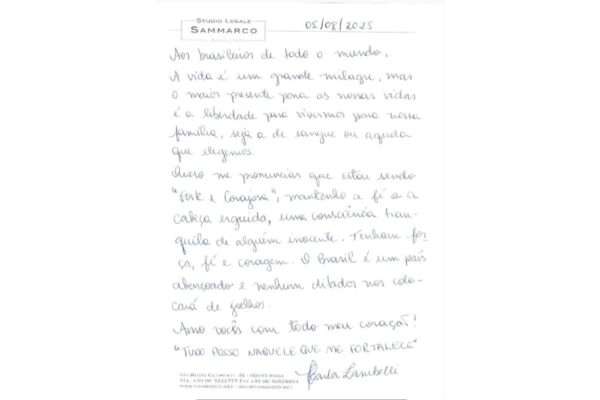 STUDIO LEGALE
SAMMARCO
05/08/2025
Aos brasileiros de todo o mundo,
A vida é um grande milagre, mas
o maior presente para as nossas vidas
é a liberdade para vivermos para nossa
família, seja a de sangue ou aquela
que elegemos.
Quero me pronunciar que estou sendo
"Forte e Corajosa", mantendo a fé e a
cabeça erguida, uma consciência tran-
quila de alguém inocente. Tenham for-
ça, fé e coragem. O Brasil é um país
abençoado e nenhum ditador nos colo-
cará de joelhos.
Amo vocês com todo meu coração!
"TUDO POSSO NAQUELE QUE ME FORTALECE"
Carla Zambelli